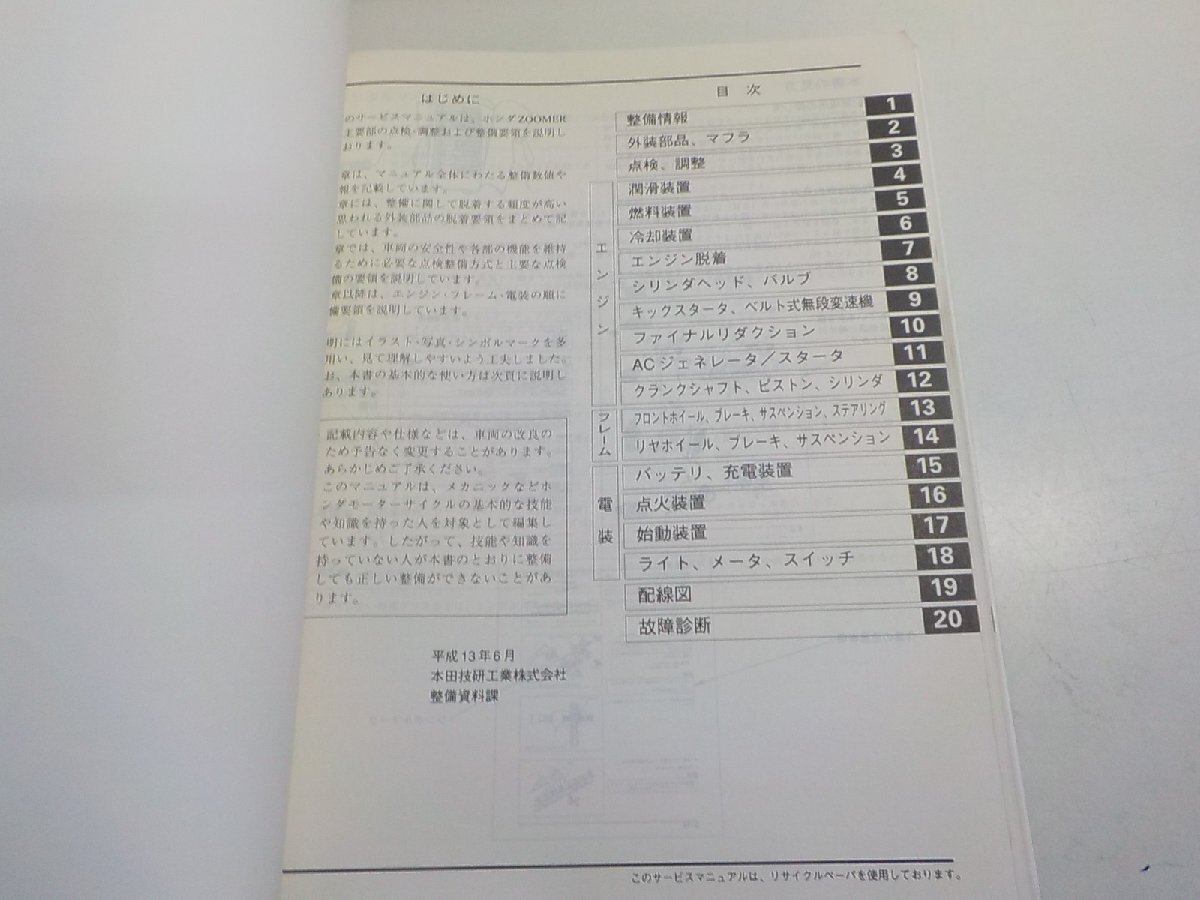 はじめに
のサービスマニュアルは、ホンダZOOMER
主要部の点検・調整および整備要領を説明し
おります。
章は、マニュアル全体にわたる整備数値や
報を記載しています。
章には、整備に関して脱着する頻度が高い
思われる外装部品の脱着要領をまとめて記
しています。
章では、車両の安全性や各部の機能を維持
るために必要な点検整備方式と主要な点検
備の要領を説明しています。
章以降は、エンジン・フレーム・電装の順に
備要領を説明しています。
明にはイラスト・写真・シンボルマークを多
用い、見て理解しやすいよう工夫しました。
お、本書の基本的な使い方は次頁に説明し
あります。
記載内容や仕様などは、車両の改良の
ため予告なく変更することがあります。
あらかじめご了承ください。
このマニュアルは、メカニックなどホ
ンダモーターサイクルの基本的な技能
や知識を持った人を対象として編集し
ています。したがって、技能や知識を
持っていない人が本書のとおりに整備
しても正しい整備ができないことがあ
ります。
平成13年6月
本田技研工業株式会社
整備資料課
目 次
整備情報 1
外装部品、マフラ 2
点検、調整 3
エンジン
潤滑装置 4
燃料装置 5
冷却装置 6
エンジン脱着 7
シリンダヘッド、バルブ 8
キックスタータ、ベルト式無段変速機 9
ファイナルリダクション 10
ACジェネレータ/スタータ 11
クランクシャフト、ピストン、シリンダ 12
フレーム
フロントホイール、ブレーキ、サスペンション、ステアリング 13
リヤホイール、ブレーキ、サスペンション 14
電装
バッテリ、充電装置 15
点火装置 16
始動装置 17
ライト、メータ、スイッチ 18
配線図 19
故障診断 20
このサービスマニュアルは、リサイクルペーパを使用しております。